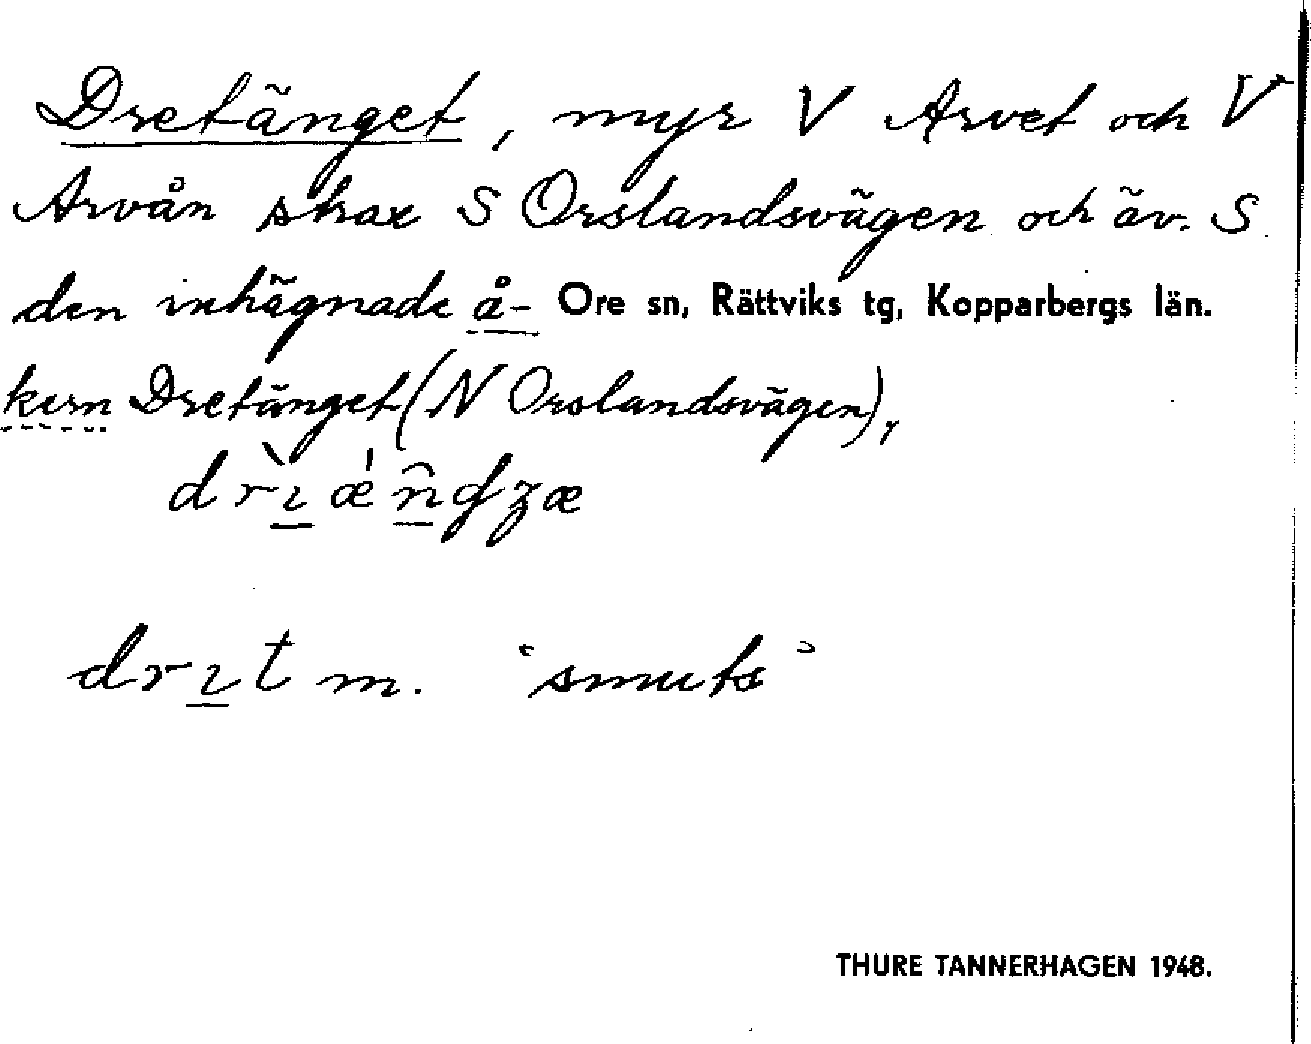 Dretänget, myr V Arvet och V
Arvån strax S Orslandsvägen och äv. S
den inhägnade å- Ore sn, Rättviks tg, Kopparbergs län.
kern Dretänget (N Orslandsvägen),
drı̀ǽn̂ʤæ
drıt m. 'smuts'
THURE TANNERHAGEN 1948.